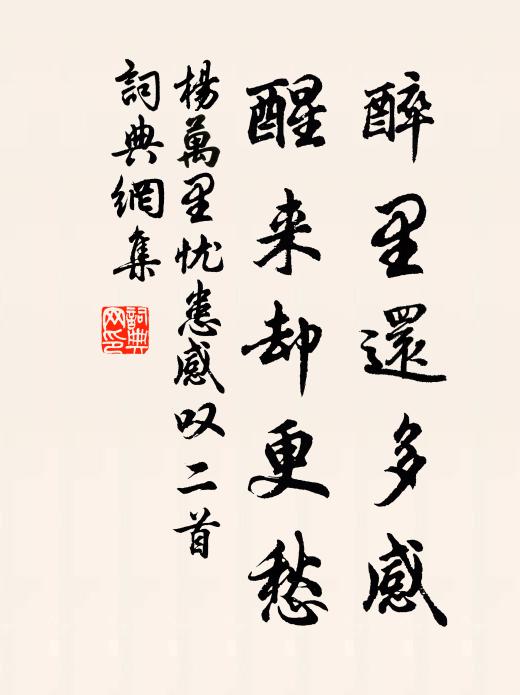 醉里還多感
醒来却更愁
楊萬里忧患感叹二首
詞典網集
詞典網印